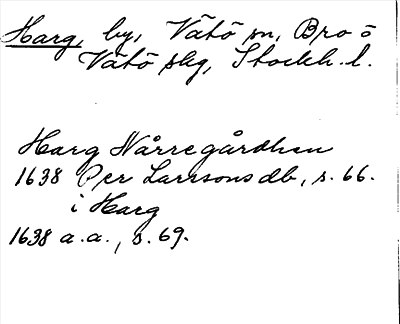 Harg, by, Vätö sn, Bro o
Vätö skg, Stockh. l.
Harg Nårregårdhen
1638 Per Larrsons db, s. 66.
i Harg
1638 a.a., s. 69.